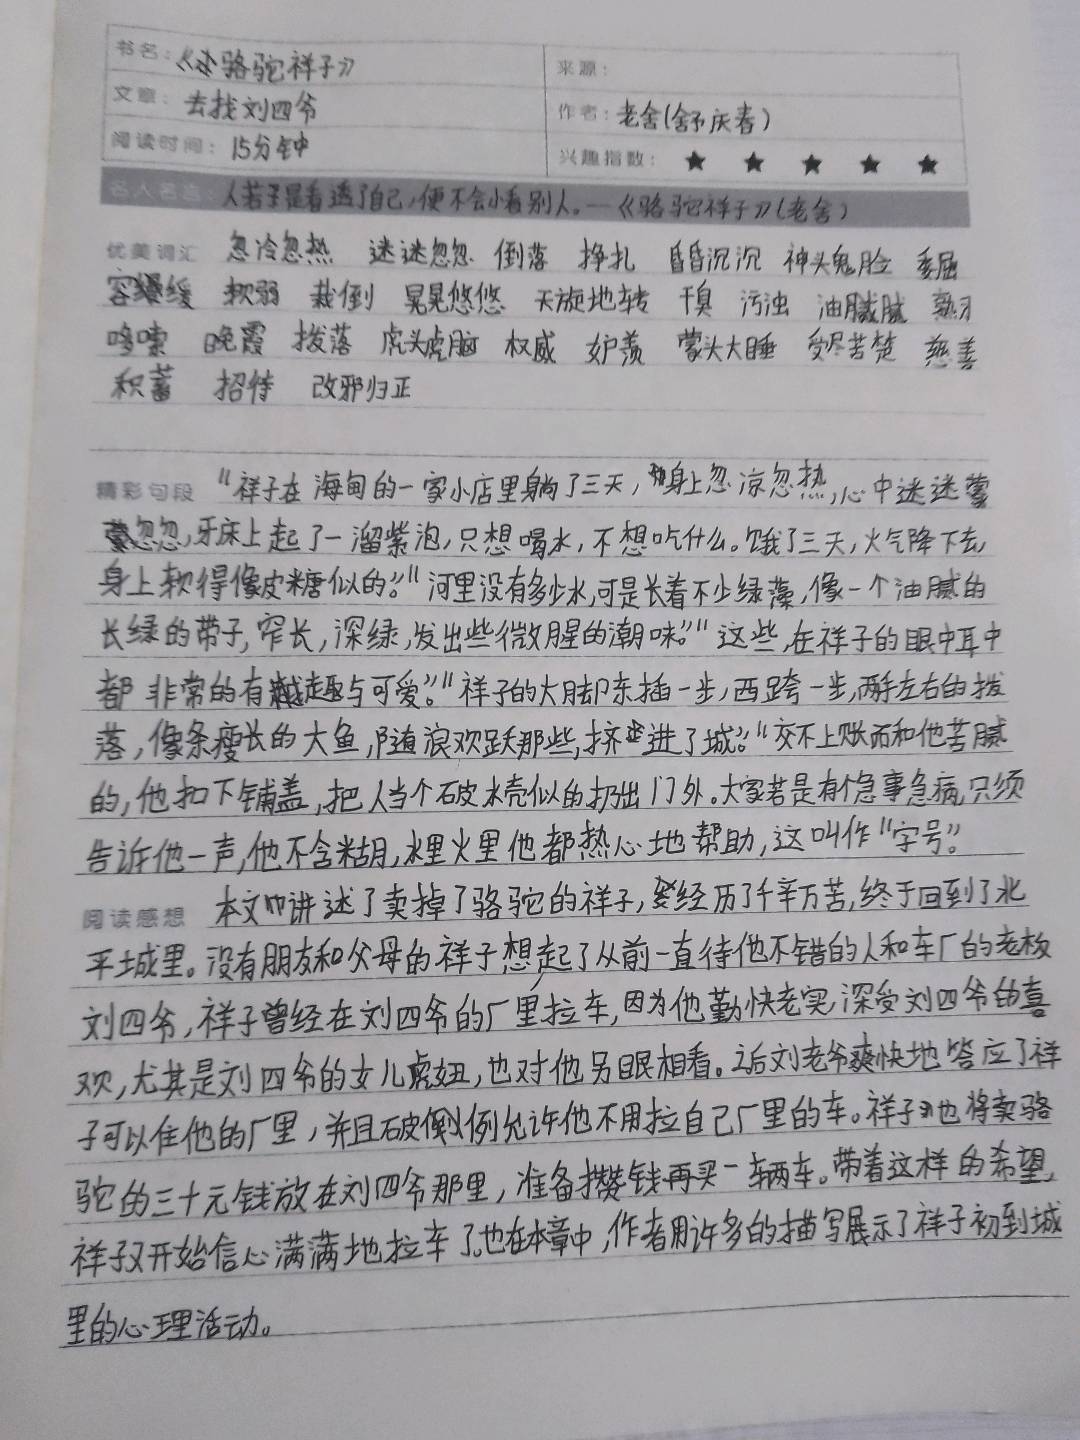 书名:《骆驼祥子》
来源:
文章:去找刘四爷
作者:老舍(舒庆春)
阅读时间:15分钟
兴趣指数:★ ★ ★ ★ ★
名人名言 人若是看透了自己,便不会小看别人。—《骆驼祥子》(老舍)
优美词汇 忽冷忽热 迷迷忽忽 倒落 挣扎 昏昏沉沉 神头鬼脸 委屈
缓 软弱 栽倒 晃晃悠悠 天旋地转 干臭 污浊 油腻腻 熟习
哆嗦 晚霞 拨落 虎头虎脑 权威 妒羡 蒙头大睡 受尽苦楚 慈善
积蓄 招待 改邪归正
精彩句段 “祥子在海甸的一家小店里躺了三天,身上忽凉忽热,心中迷迷
忽忽,牙床上起了一溜紫泡,只想喝水,不想吃什么。饿了三天,火气降下去,
身上软得像皮糖似的。”“河里没有多少水,可是长着不少绿藻,像一个油腻的
长绿的带子,窄长,深绿,发出些微腥的潮味。”“这些,在祥子的眼中耳中
都非常的有趣与可爱。”“祥子的大脚东插一步,西跨一步,两手左右的拨
落,像条瘦长的大鱼,随浪欢跃那些,挤进了城。”“交不上账而和他苦腻
的,他扣下铺盖,把人当个破水壳似的扔出门外。大家若是有个急事急病,只须
告诉他一声,他不含糊,水里火里他都热心地帮助,这叫作“字号”。
阅读感想 本文中讲述了卖掉了骆驼的祥子,经历了千辛万苦,终于回到了北
平城里。没有朋友和父母的祥子想起了从前一直待他不错的人和车厂的老板
刘四爷,祥子曾经在刘四爷的厂里拉车,因为他勤快老实,深受刘四爷的喜
欢,尤其是刘四爷的女儿虎妞,也对他另眼相看。之后刘老爷爽快地答应了祥
子可以住他的厂里,并且破例允许他不用拉自己厂里的车。祥子也将卖骆
驼的三十元钱放在刘四爷那里,准备攒钱再买一辆车。带着这样的希望,
祥子又开始信心满满地拉车了。也在本章中,作者用许多的描写展示了祥子初到城
里的心理活动。